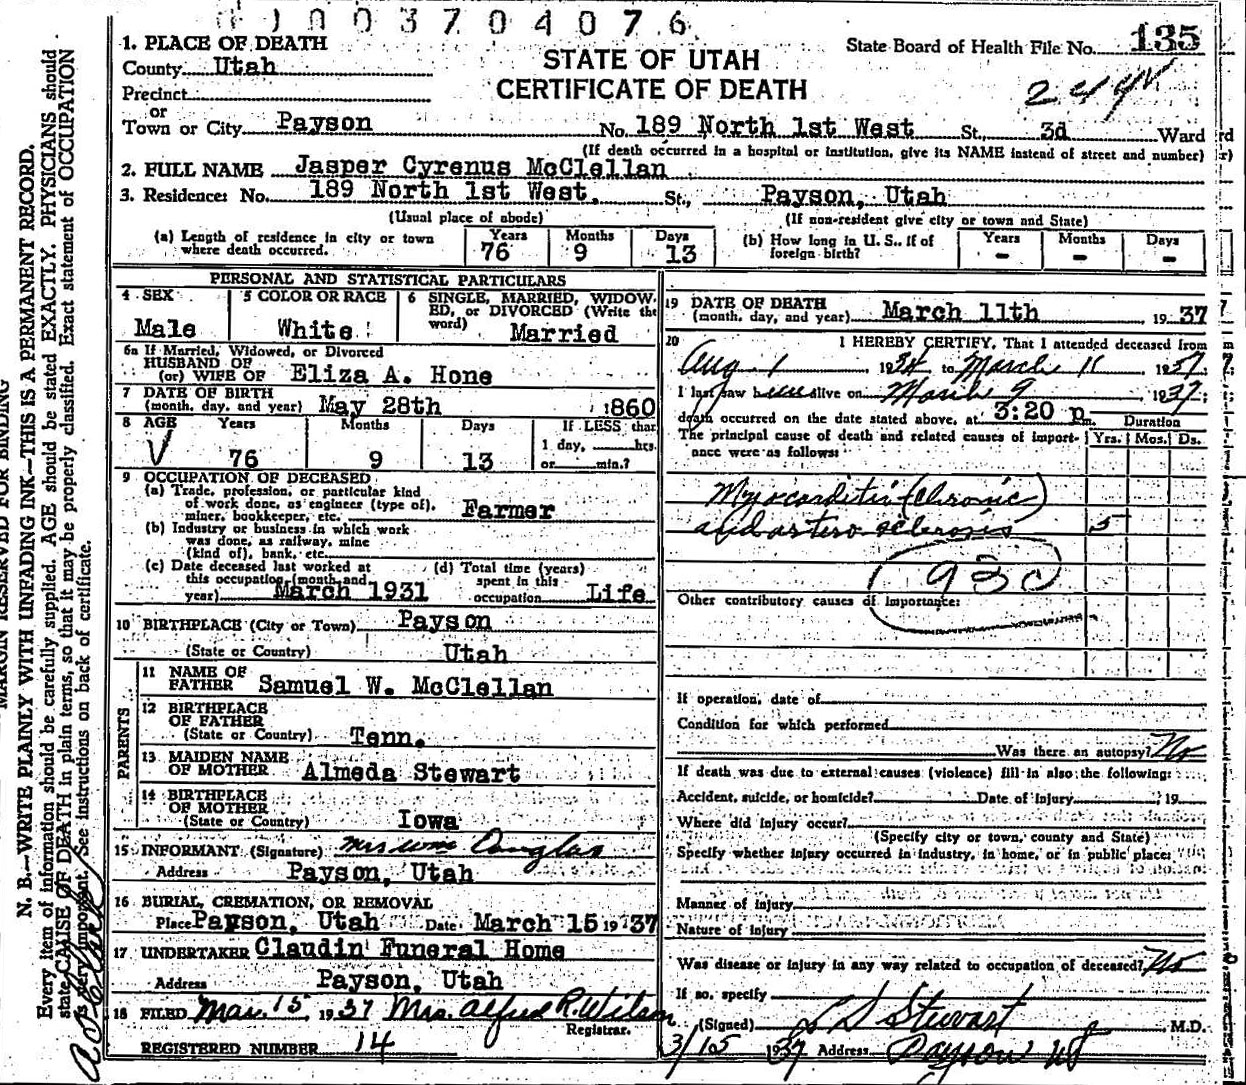 003704076
1. PLACE OF DEATH
State Board of Health File No. 135
County Utah
STATE OF UTAH
Precinct
CERTIFICATE OF DEATH
or
Town or City Payson No. 189 North 1st West St., 3d Ward
(If death occurred in a hospital or institution, give its NAME instead of street and number)
2. FULL NAME Jasper Cyrenus McClellan
3. Residence: No. 189 North 1st West. St., Payson, Utah
(Usual place of abode) (If non-resident give city or town and State)
(a) Length of residence in city or town where death occurred. Years 76 Months 9 Days 13
(b) How long in U. S., if of foreign birth? Years - Months - Days -
PERSONAL AND STATISTICAL PARTICULARS
4 SEX Male
5 COLOR OR RACE White
6 SINGLE, MARRIED, WIDOWED, or DIVORCED (Write the word) Married
6a If Married, Widowed, or Divorced
HUSBAND OF
(or) WIFE OF Eliza A. Hone
7 DATE OF BIRTH
(month, day, and year) May 28th 1860
8 AGE Years Months Days If LESS than
1 day, hrs.
76 9 13 or min.?
9 OCCUPATION OF DECEASED
(a) Trade, profession, or particular kind
of work done, as engineer (type of),
miner, bookkeeper, etc. Farmer
(b) Industry or business in which work
was done, as railway, mine
(kind of), bank, etc.
(c) Date deceased last worked at
this occupation (month and
year) March 1931
(d) Total time (years)
spent in this
occupation Life
10 BIRTHPLACE (City or Town) Payson
(State or Country) Utah
PARENTS
11 NAME OF
FATHER Samuel W. McClellan
12 BIRTHPLACE
OF FATHER
(State or Country) Tenn.
13 MAIDEN NAME
OF MOTHER Almeda Stewart
14 BIRTHPLACE
OF MOTHER
(State or Country) Iowa
15 INFORMANT (Signature) Mrs Wm Douglas
Address Payson, Utah
16 BURIAL, CREMATION, OR REMOVAL
Place Payson, Utah Date March 15 1937
17 UNDERTAKER Claudin Funeral Home
Address Payson, Utah
18 FILED Mar. 15 1937 Mrs. Alfred R. Wilson
Registrar.
REGISTERED NUMBER 14
19 DATE OF DEATH
(month, day, and year) March 11th 1937
20 I HEREBY CERTIFY, That I attended deceased from
Aug 1 1934 to March 11 1937
I last saw him alive on March 9 1937;
death occurred on the date stated above, at 3:20 p m. Duration
The principal cause of death and related causes of importance were as follows: Yrs. Mos. Ds.
Myocarditis (chronic)
and artero sclerosis 5
93c
Other contributory causes of importance:
If operation, date of
Condition for which performed
Was there an autopsy? No
If death was due to external causes (violence) fill in also the following:
Accident, suicide, or homicide? Date of injury , 19
Where did injury occur?
(Specify city or town, county and State)
Specify whether injury occurred in industry, in home, or in public place:
Manner of injury
Nature of injury
Was disease or injury in any way related to occupation of deceased? No
If so, specify
(Signed) L D Stewart M.D.
3/15 1937 Address Payson Ut
MARGIN RESERVED FOR BINDING
N. B.—WRITE PLAINLY WITH UNFADING INK—THIS IS A PERMANENT RECORD.
Every item of information should be carefully supplied. AGE should be stated EXACTLY. PHYSICIANS should
state CAUSE OF DEATH in plain terms, so that it may be properly classified. Exact statement of OCCUPATION
is very important. See instructions on back of certificate.